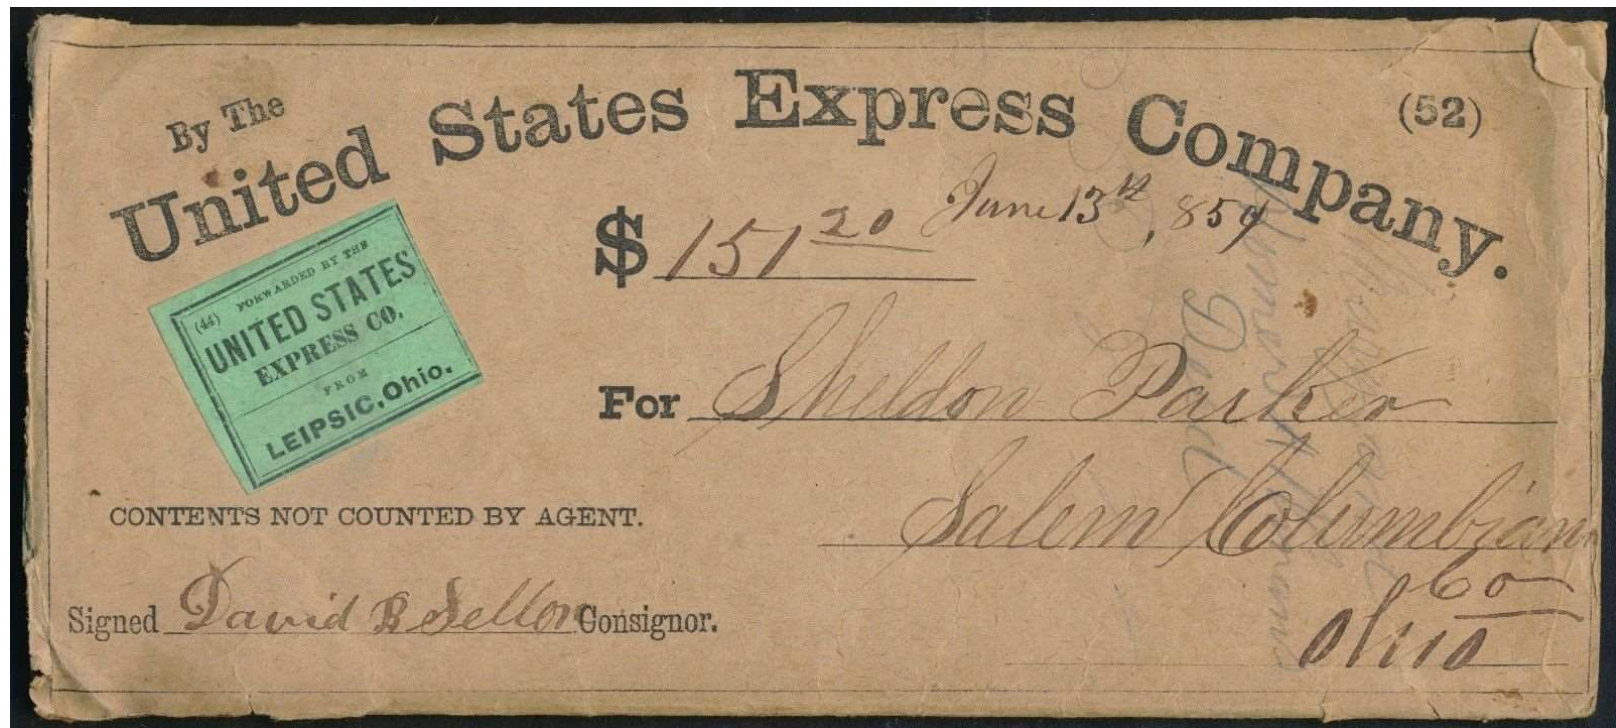 By The
United States Express Company.
(52)
June 13th, 859
$ 151 20
FORWARDED BY THE
(44)
UNITED STATES
EXPRESS CO.
FROM
LEIPSIC, Ohio.
For Sheldon Parker
Salem Columbiana
Co
Ohio
CONTENTS NOT COUNTED BY AGENT.
Signed David B Sellon Consignor.